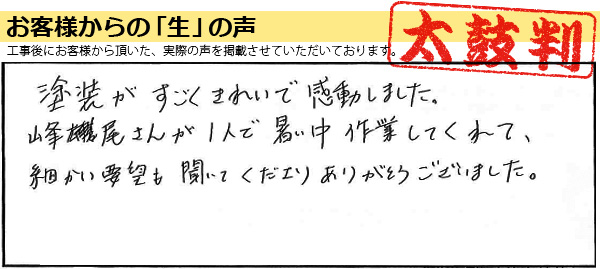 お客様からの「生」の声
工事後にお客様から頂いた、実際の声を掲載させていただいております。
太鼓判
塗装がすごくきれいで感動しました。
峰尾さんが1人で暑い中作業してくれて、
細かい要望も聞いてくださりありがとうございました。